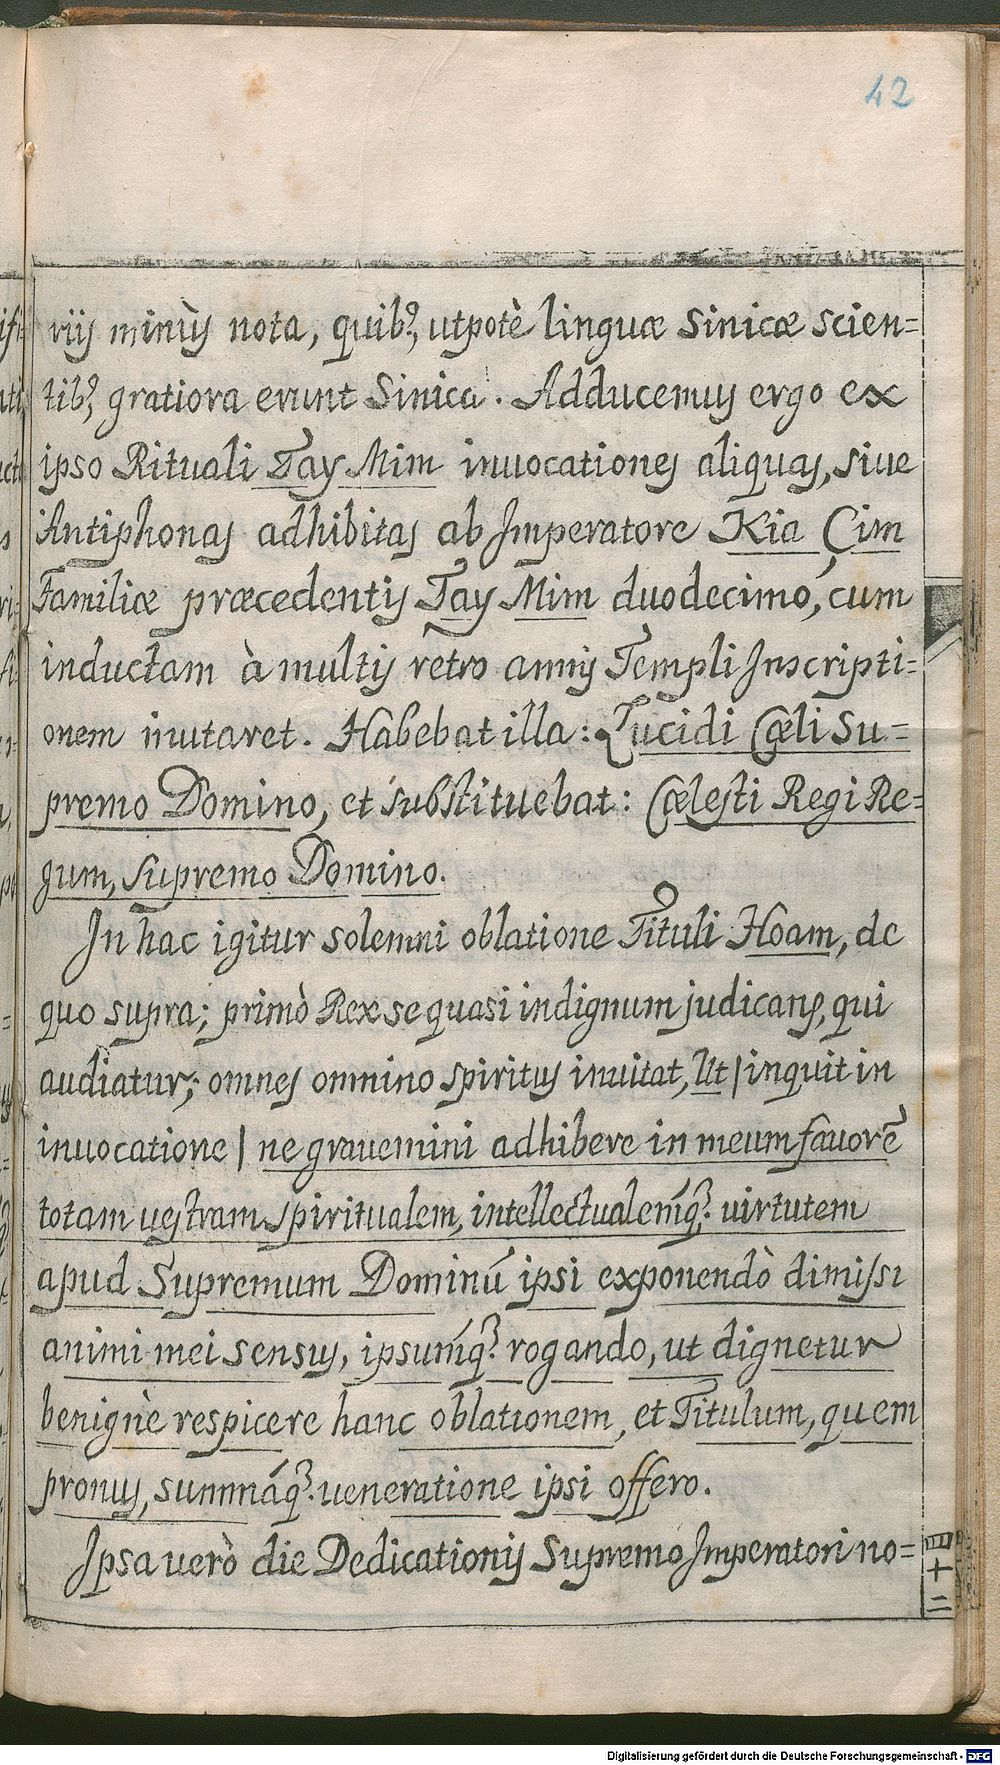 42
rijs minùs nota, quib9, utpotè linguæ Sinicæ scien=
tib9, gratiora erunt Sinica. Adducemus ergo ex
ipso Rituali Tay Mim invocationes aliquas, sive
Antiphonas adhibitas ab Imperatore Kia Çim
Familiæ præcedentis Tay Mim duodecimo, cum
inductam à multis retro annis Templi Inscripti=
onem mutaret. Habebat illa: Lucidi Cæli Su=
premo Domino, et substituebat: Cælesti Regi Re=
gum, supremo Domino.
In hac igitur solemni oblatione Tituli Hoam, de
quo supra; primò Rex se quasi indignum judicans, qui
audiatur; omnes omnino spiritus invitat, Ut | inquit in
invocatione | ne gravemini adhibere in meum favorē
totam vestram spiritualem, intellectualemq3 virtutem
apud Supremum Dominū ipsi exponendò dimissi
animi mei sensus, ipsumq3 rogando, ut dignetur
benignè respicere hanc oblationem, et Titulum, quem
pronus, summáq3 veneratione ipsi offero.
Ipsa verò die Dedicationis Supremo Imperatori no=
四十二
Digitalisierung gefördert durch die Deutsche Forschungsgemeinschaft - DFG